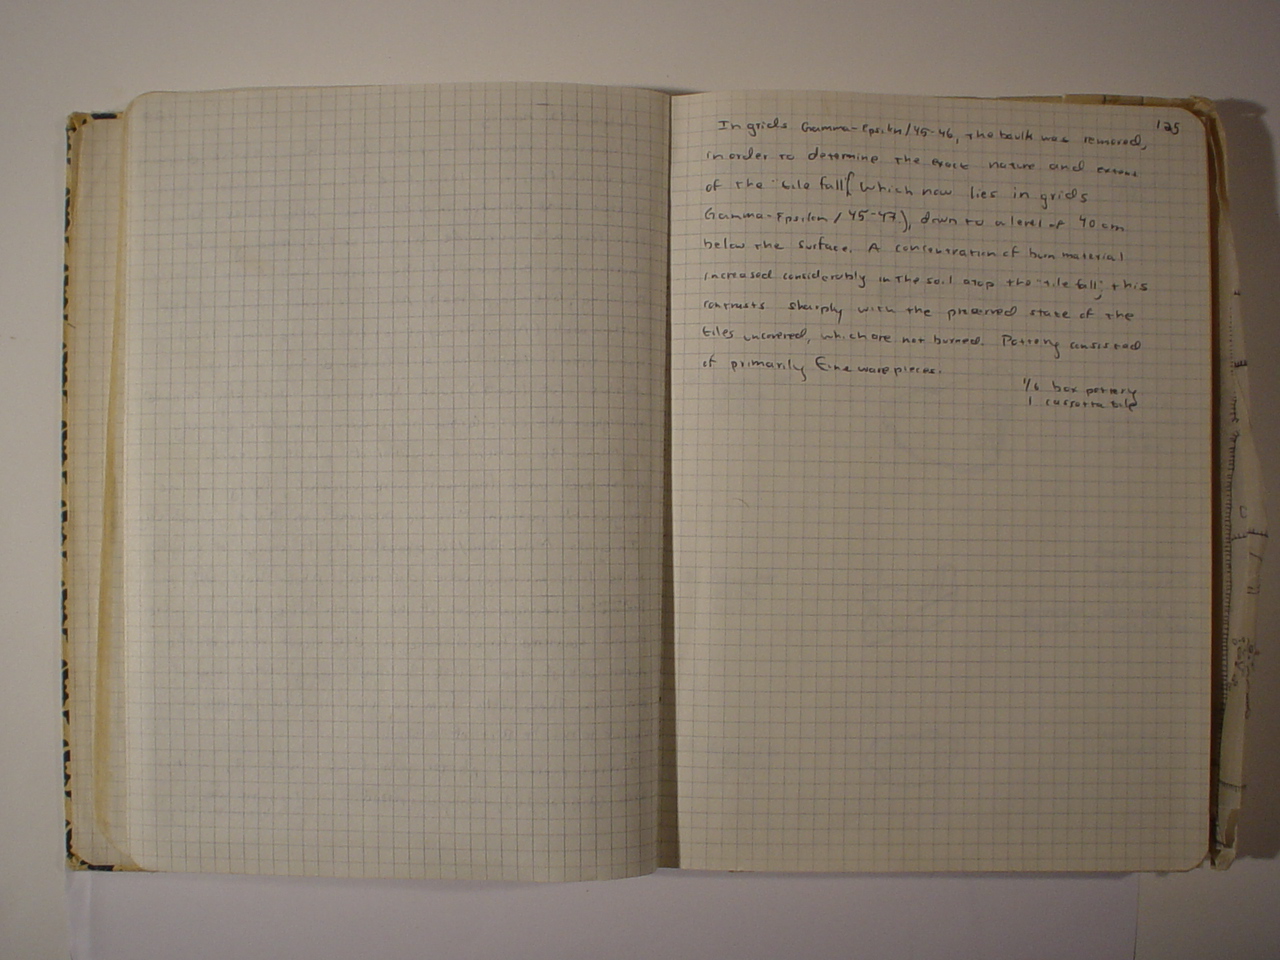 125
In grids Gamma-Epsilon/45-46, the baulk was removed,
in order to determine the exact nature and extent
of the "tile fall" (which now lies in grids
Gamma-Epsilon/45-47), down to a level of 40 cm
below the surface. A concentration of burn material
increased considerably in the soil atop the "tile fall"; this
contrasts sharply with the preserved state of the
tiles uncovered, which are not burned. Pottery consisted
of primarily fine ware pieces.
1/6 box pottery
1 cassetta tile